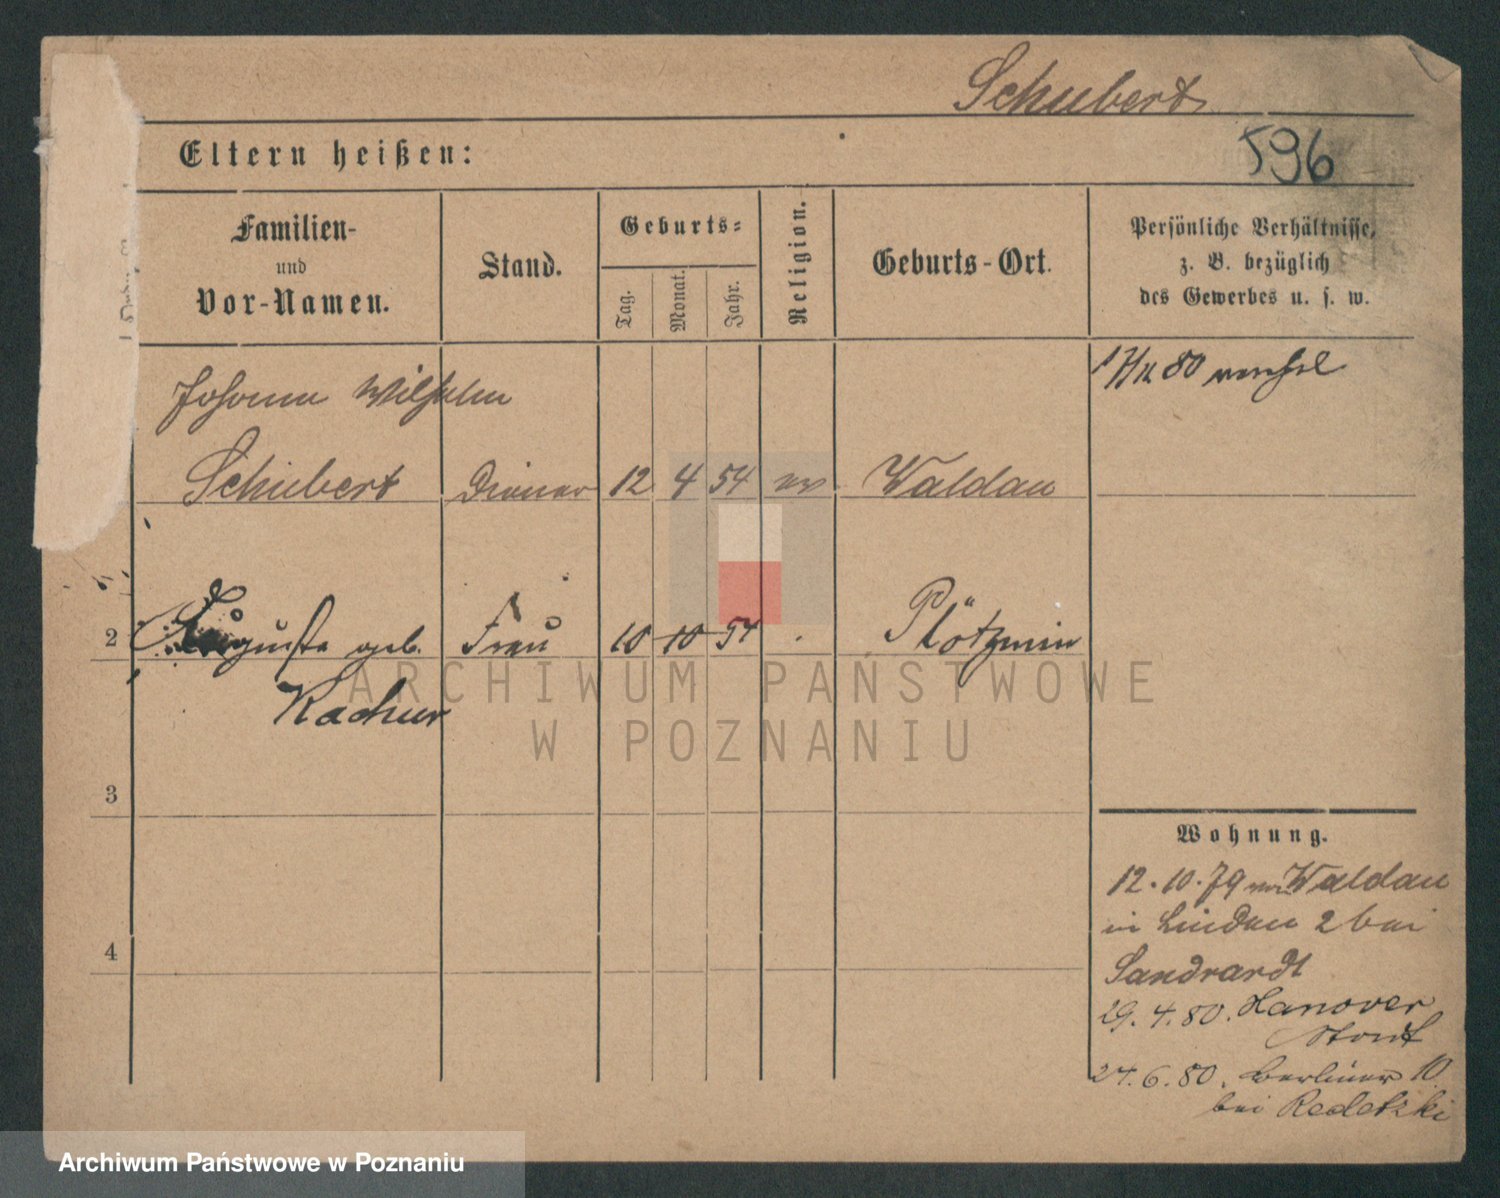 Schubert
596
Eltern heißen:
Familien-
und
Vor-Namen.
Stand.
Geburts-
Tag.
Monat.
Jahr.
Religion.
Geburts-Ort.
Persönliche Verhältnisse,
z. B. bezüglich
des Gewerbes u. s. w.
Johann Wilhelm
Schubert Diener 12 4 54 ev Waldau
17/12 80
2 Auguste geb. Frau 10 10 54 Plötzmin
Kachur
3
4
Wohnung.
12.10.79 von Waldau
in Linden 2 bei
Sandrardt
29.4.80. Hanover
27.6.80. Berliner 10
bei Redetzki
ARCHIWUM PAŃSTWOWE
W POZNANIU
Archiwum Państwowe w Poznaniu